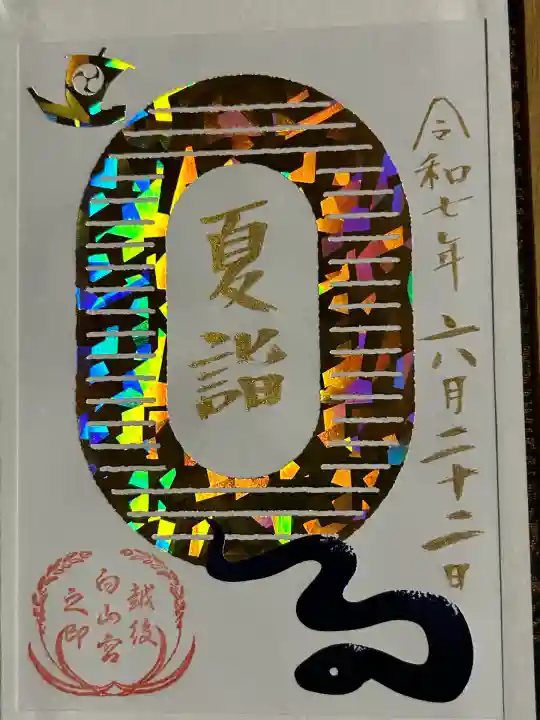 令和七年 六月二十二日
夏詣
越後
白山宮
之印